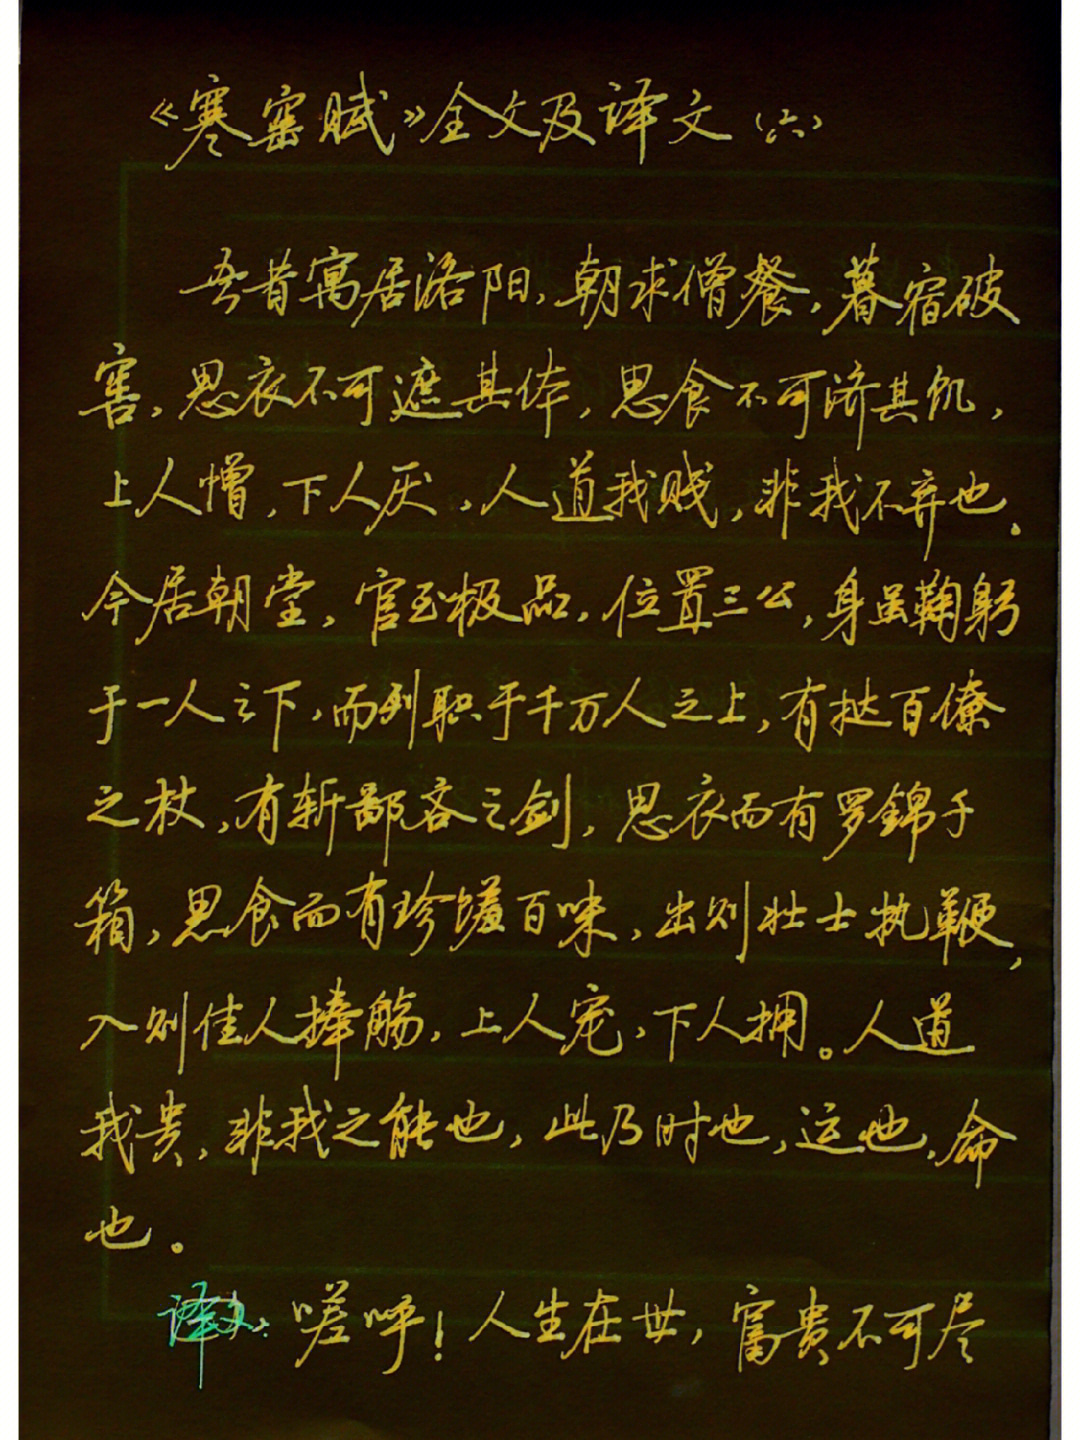 《寒窑赋》全文及译文(六)
吾昔寓居洛阳,朝求僧餐,暮宿破
窖,思衣不可遮其体,思食不可济其饥,
上人憎,下人厌,人道我贱,非我不弃也。
今居朝堂,官至极品,位置三公,身虽鞠躬
于一人之下,而列职于千万人之上,有挞百僚
之杖,有斩鄙吝之剑,思衣而有罗锦千
箱,思食而有珍馐百味,出则壮士执鞭,
入则佳人捧觞,上人宠,下人拥。人道
我贵,非我之能也,此乃时也,运也,命
也。
译文:嗟呼!人生在世,富贵不可尽